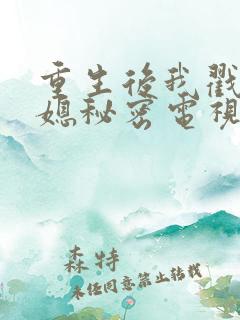 重生後我戳
媳秘密電視
森特
未经同意禁止转载